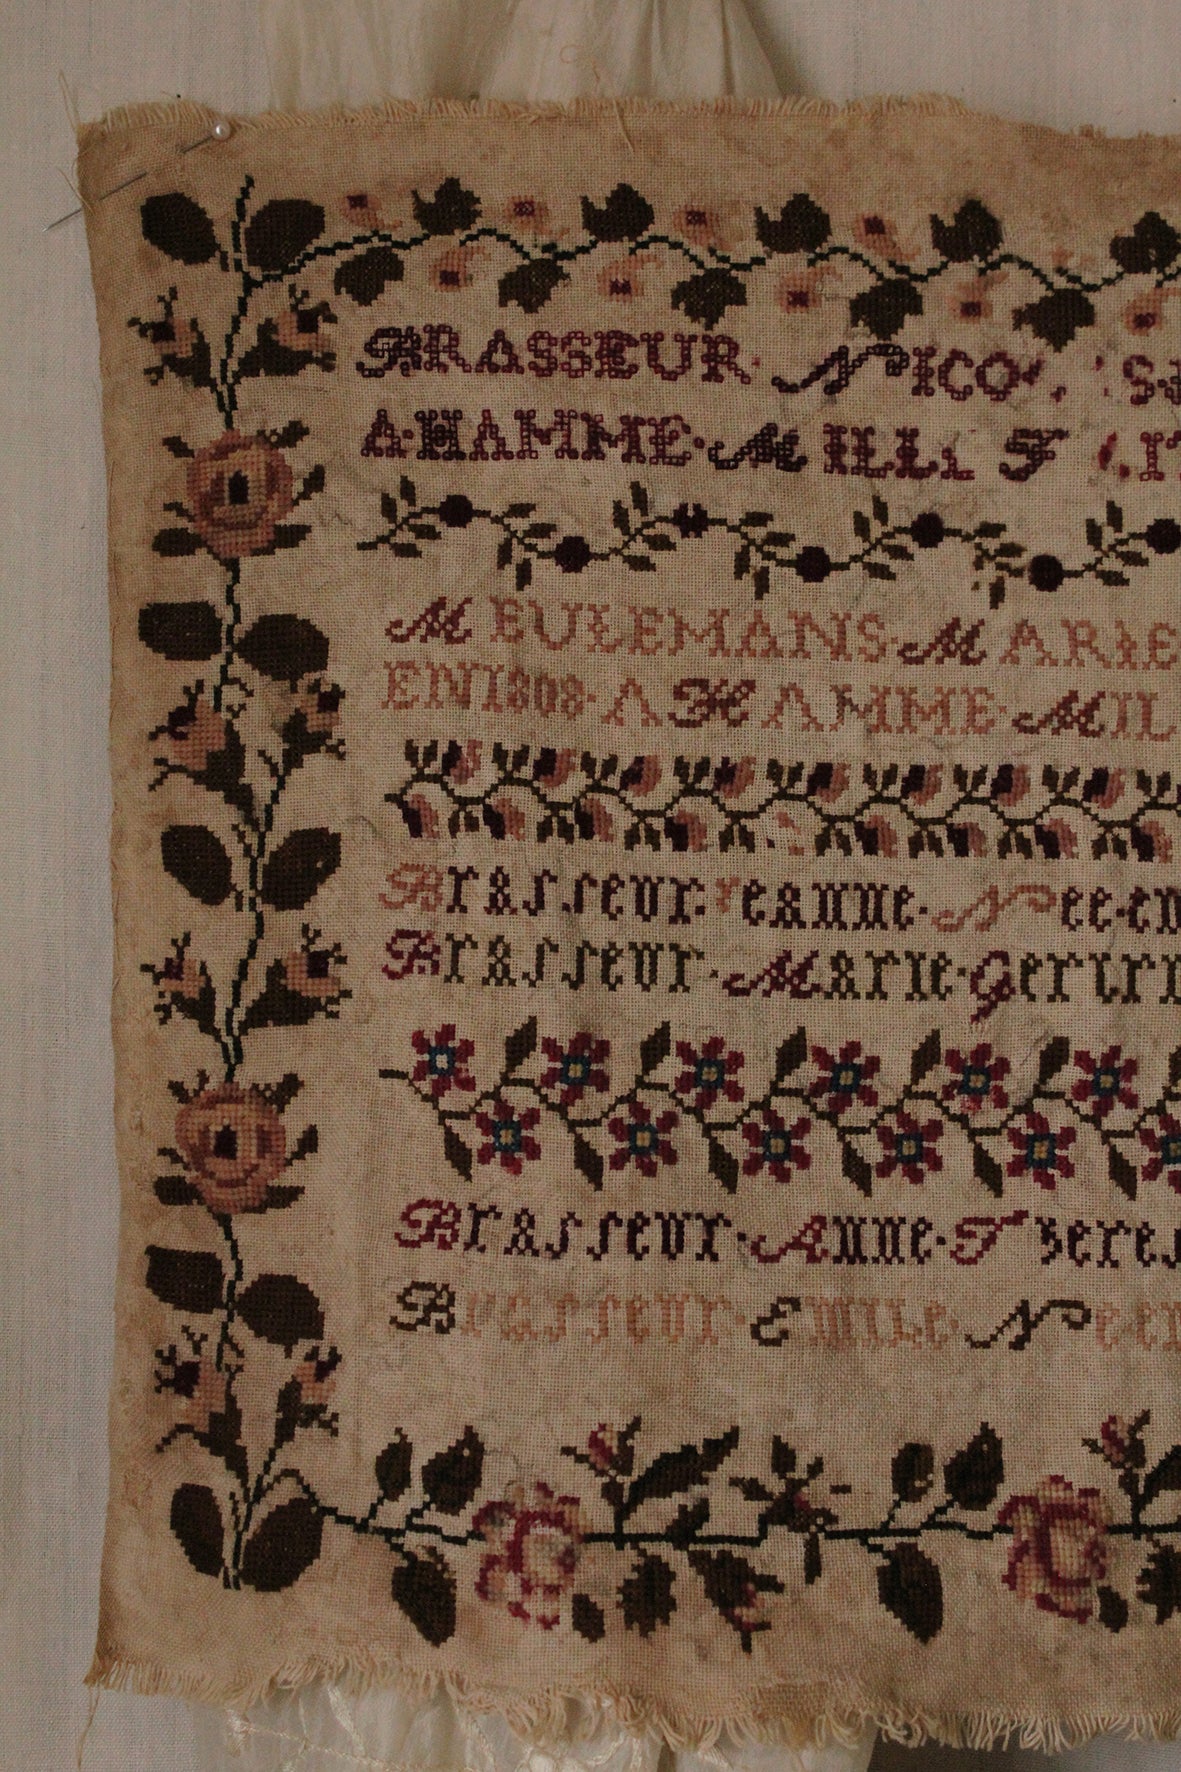 BRASSEUR· NICO
A·HAMME· MILL
MEULEMANS· MARIE
EN1808· A HAMME· MIL
Brasseur· Jeanne· Nee·en
Brasseur· Marie·Gertr
Brasseur· Anne·Theres
Brasseur· Emile· Neen